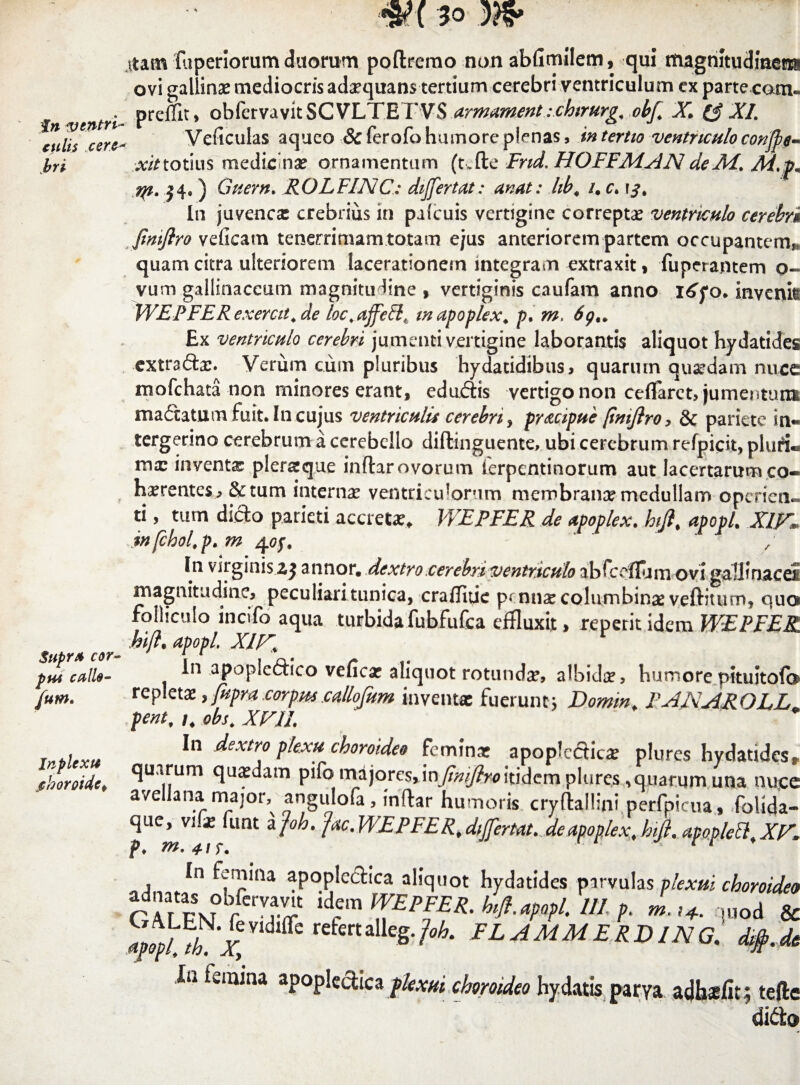 ( 30 )
itam superiorum duorum postremo non absimilem, qui magnitudinem
ovi gallinæ mediocris adæquans tertium cerebri ventriculum ex parte com-
In ventri-
culis cere-
bri
pressit, observavit SCVLTETVS armament: chirurg. obs. X. & XI.
Vesiculas aqueo & seroso humore plenas, in tertio ventriculo conspe-
xit totius medicinæ ornamentum (teste Frid. HOFFMAN de M. M. p.
m. 34.) Guern. ROLFINC: dissertat: anat: lib. 1. c. 13.
In juvencæ crebrius in pascuis vertigine correptæ ventriculo cerebri
sinistro vesicam tenerrimam totam ejus anteriorem partem occupantem,
quam citra ulteriorem lacerationem integram extraxit, superantem o-
vum gallinaceum magnitudine, vertiginis causam anno 1650. invenit
WEPFER exercit. de loc. affect. in apoplex. p. m. 69..
Ex ventriculo cerebri jumenti vertigine laborantis aliquot hydatides
extractæ. Verùm cùm pluribus hydatidibus, quarum quædam nuce
moschatâ non minores erant, eductis vertigo non cessaret, jumentum
mactatum fuit. In cujus ventriculis cerebri, præcipuè sinistro, & pariete in-
tergerino cerebrum à cerebello distinguente, ubi cerebrum respicit, pluri-
mæ inventæ pleræque instar ovorum serpentinorum aut lacertarum co-
hærentes, & tum internæ ventriculorum membranæ medullam operien-
ti, tum dicto parieti accretæ. WEPFER de apoplex. hist. apopl. XIV.
in schol. p. m 405.
In virginis 23 annor. dextro cerebri ventriculo abscessum ovi gallinacei
magnitudine, peculiari tunica, crassitie pennæ columbinæ vestitum, quo
folliculo inciso aqua turbida subfusca effluxit, reperit idem WEPFER
hist. apopl. XIV.
Supra cor-
pus callo-
sum.
In apoplectico vesicæ aliquot rotundæ, albidæ, humore pituitoso
repletæ, supra corpus callosum inventæ fuerunt; Domin. PANAROLL.
pent. 1. obs. XVII.
In plexu
choroide.
In dextro plexu choroideo feminæ apoplecticæ plures hydatides,
quarum quædam piso majores, in sinistro itidem plures, quarum una nuce
avellana major, angulosa, instar humoris crystallini perspicua, solida-
que, visæ sunt à Joh. Jac. WEPFER. dissertat. de apoplex. hist. apoplect. XV.
p. m. 415.
In femina apoplectica aliquot hydatides parvulas plexui choroideo
adnatas observavit idem WEPFER. hist. apopl. III. p. m. 14. quod &
GALEN. se vidisse refert alleg. Joh. FLAMMERDING. disp. de
apopl. th. X.
In femina apoplectica plexui choroideo hydatis parva adhæsit; teste
dicto